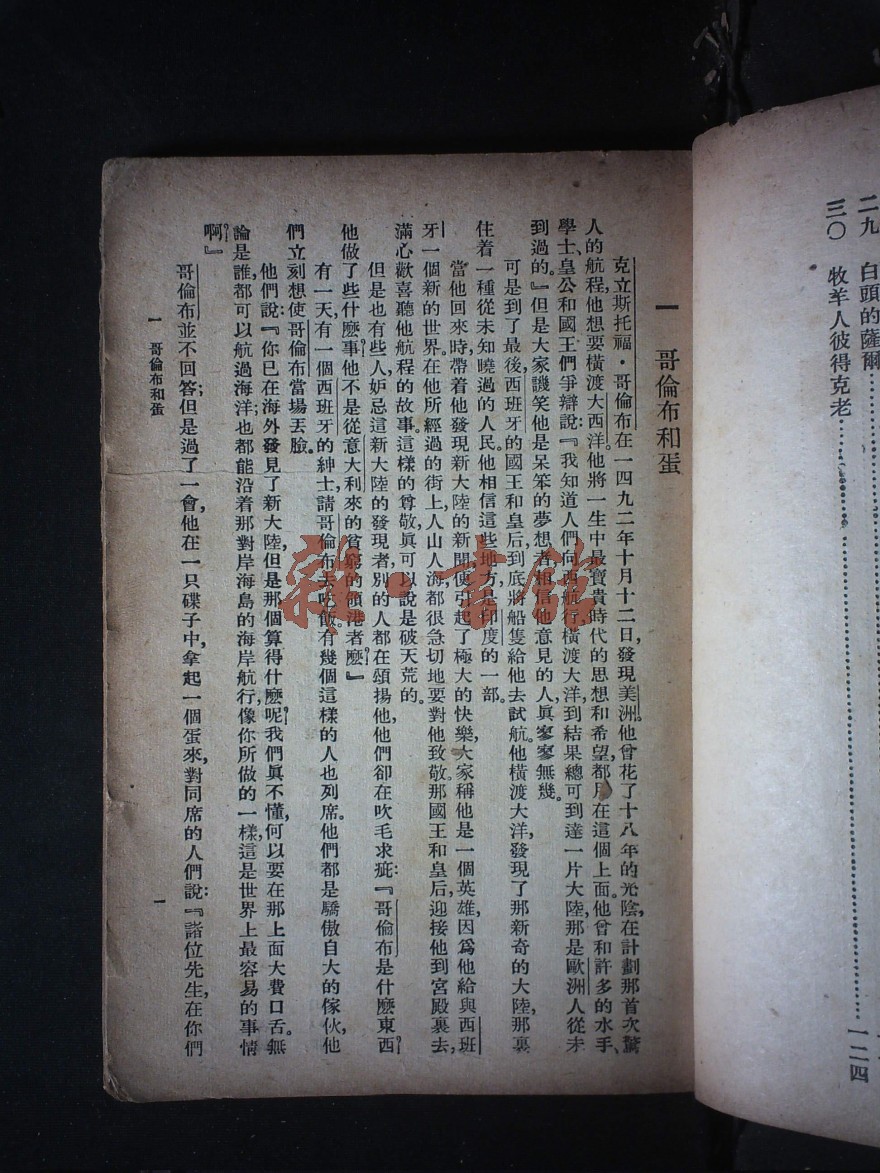 二九　白頭的薩爾
三〇　牧羊人彼得克老…………一二四
一　哥倫布和蛋
克立斯托福・哥倫布在一四九二年十月十二日，發現美洲。他曾花了十八年的光陰，在計劃那首次驚
人的航程，他想要橫渡大西洋。他將一生中最寶貴時代的思想和希望，都用在這個上面。他曾和許多的水手、
學士、皇公和國王們爭辯說：『我知道人們向西航行橫渡大洋，到結果總可到達一片大陸，那是歐洲人從未
到過的。』但是大家譏笑他是呆笨的夢想者，相信他意見的人，眞寥寥無幾。
可是到了最後，西班牙的國王和皇后，到底將船隻給他去試航。他橫渡大洋，發現了那新奇的大陸，那裏
住着一種從未知曉過的人民。他相信這些地方，是印度的一部。
當他回來時，帶着他發現新大陸的新聞，便引起了極大的快樂，大家稱他是一個英雄，因爲他給與西班
牙一個新的世界。在他所經過的街上，人山人海，都很急切地要對他致敬。那國王和皇后，迎接他到宮殿裏去，
滿心歡喜聽他航程的故事。這樣的尊敬，眞可以說是破天荒的。
但是也有些人，妒忌這新大陸的發現者，別的人都在頌揚他，他們卻在吹毛求疵：『哥倫布是什麽東西？
他做了些什麽事？他不是從意大利來的貧窮的領港者麽？』
有一天，有一個西班牙的紳士，請哥倫布去吃飯。有幾個這樣的人也列席。他們都是驕傲自大的傢伙，他
們立刻想使哥倫布當場丟臉。
他們說：『你已在海外發見了新大陸，但是那個算得什麽呢？我們眞不懂，何以要在那上面大費口舌。無
論是誰，都可以航過海洋；也都能沿着那對岸海島的海岸航行，像你所做的一樣，這是世界上最容易的事情
啊！』
哥倫布並不回答，但是過了一會，他在一只碟子中，拿起一個蛋來，對同席的人們說：『諸位先生，在你們
一　哥倫布和蛋
一
雜・書館